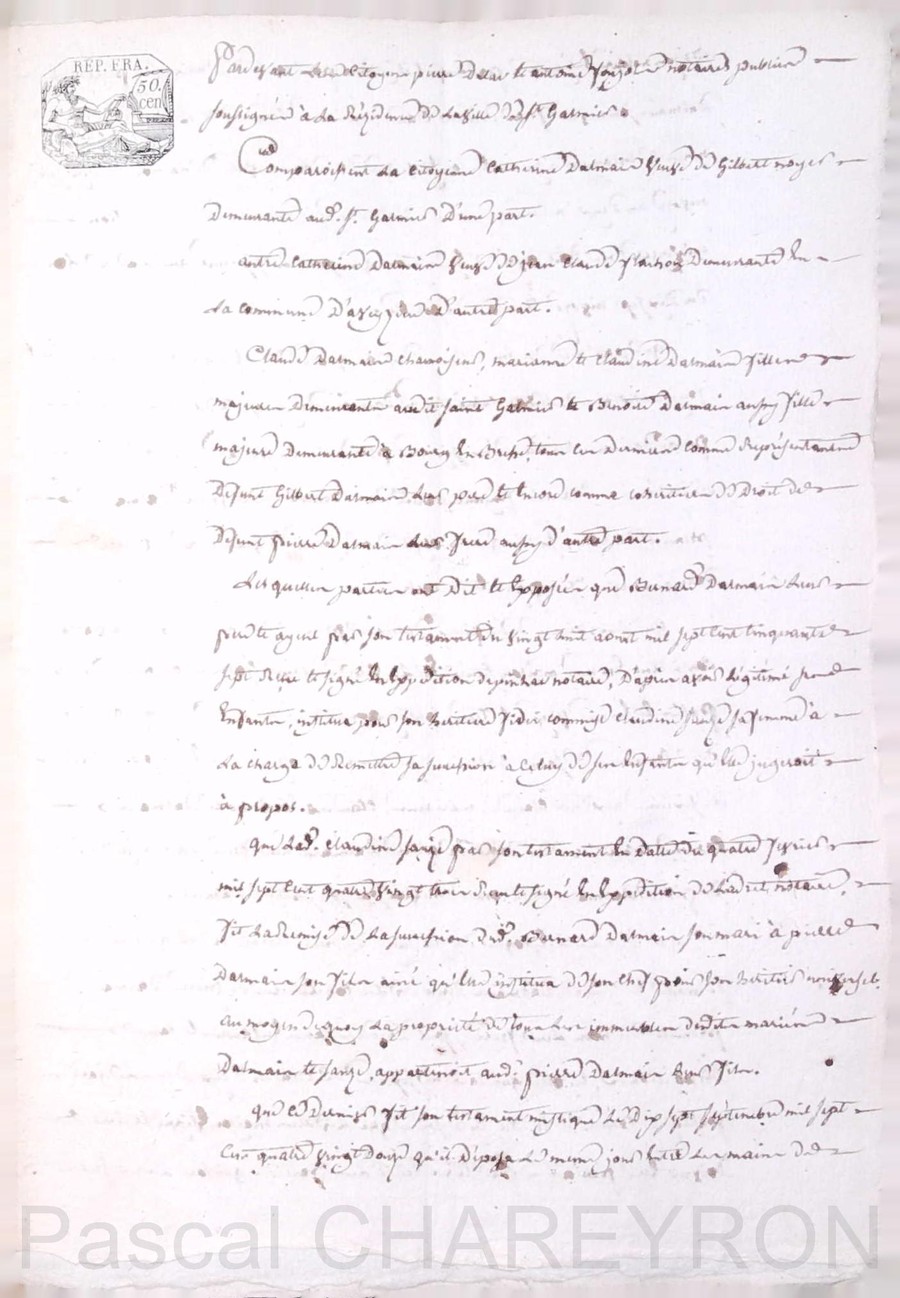 REP. FRA.
50.
cen
Pardevant les Citoyens pierre et antoine notaires publics
soussignés à La Résidence de La ville de St. Galmier
Comparoissent La Citoyenne Catherine Dalmain veuve de Gilbert
Demeurante aud. St. Galmier D'une part.
autre Catherine Dalmain veuve de jean Claude Demeurante En
La commune D'aveyzieu D'autre part.
Claude Dalmain chamoiseur, marianne et Claudine Dalmain filles
majeures Demeurantes audit saint Galmier et Benoite Dalmain aussy fille
majeure Demeurante à Bourg En Bresse, tous ces Derniers comme Représentantes
Defunt Gilbert Dalmain Leur pere et Encore comme cohéritiers de Droit de
Defunt pierre Dalmain Leur frere aussy d'autre part.
Lesquelles parties ont Dit et Exposées que Bernard Dalmain Leur
pere et ayeul par son testament du vingt huit aoust mil sept Cent Cinquante
sept Reçu et signé En Expédition depinhac notaire, D'après avoir Légitimé ses
Enfants, institua pour son héritiere fidei commise Claudine sauzé sa femme à
La charge de Remettre sa succession à Celuy de ses Enfants qu'elle jugeroit
à propos.
que Lad. Claudine sauzé par son testament En Date du quatre fevrier
mil sept Cent quatre vingt trois signé En Expédition notaire,
fit La Remise de La succession dud. Bernard Dalmain son mari à pierre
Dalmain son fils ainé qu'elle institua de son chef pour son héritier universel.
au moyen de quoy La propriété de tous Les immeubles desdits mariés
Dalmain et sauzé, appartenoit aud. pierre Dalmain Leur fils.
que ce Dernier fit son testament mistique Le Dix sept septembre mil sept
Cent quatre vingt Douze qu'il Déposa Le meme jour Entre Les mains de
Pascal CHAREYRON